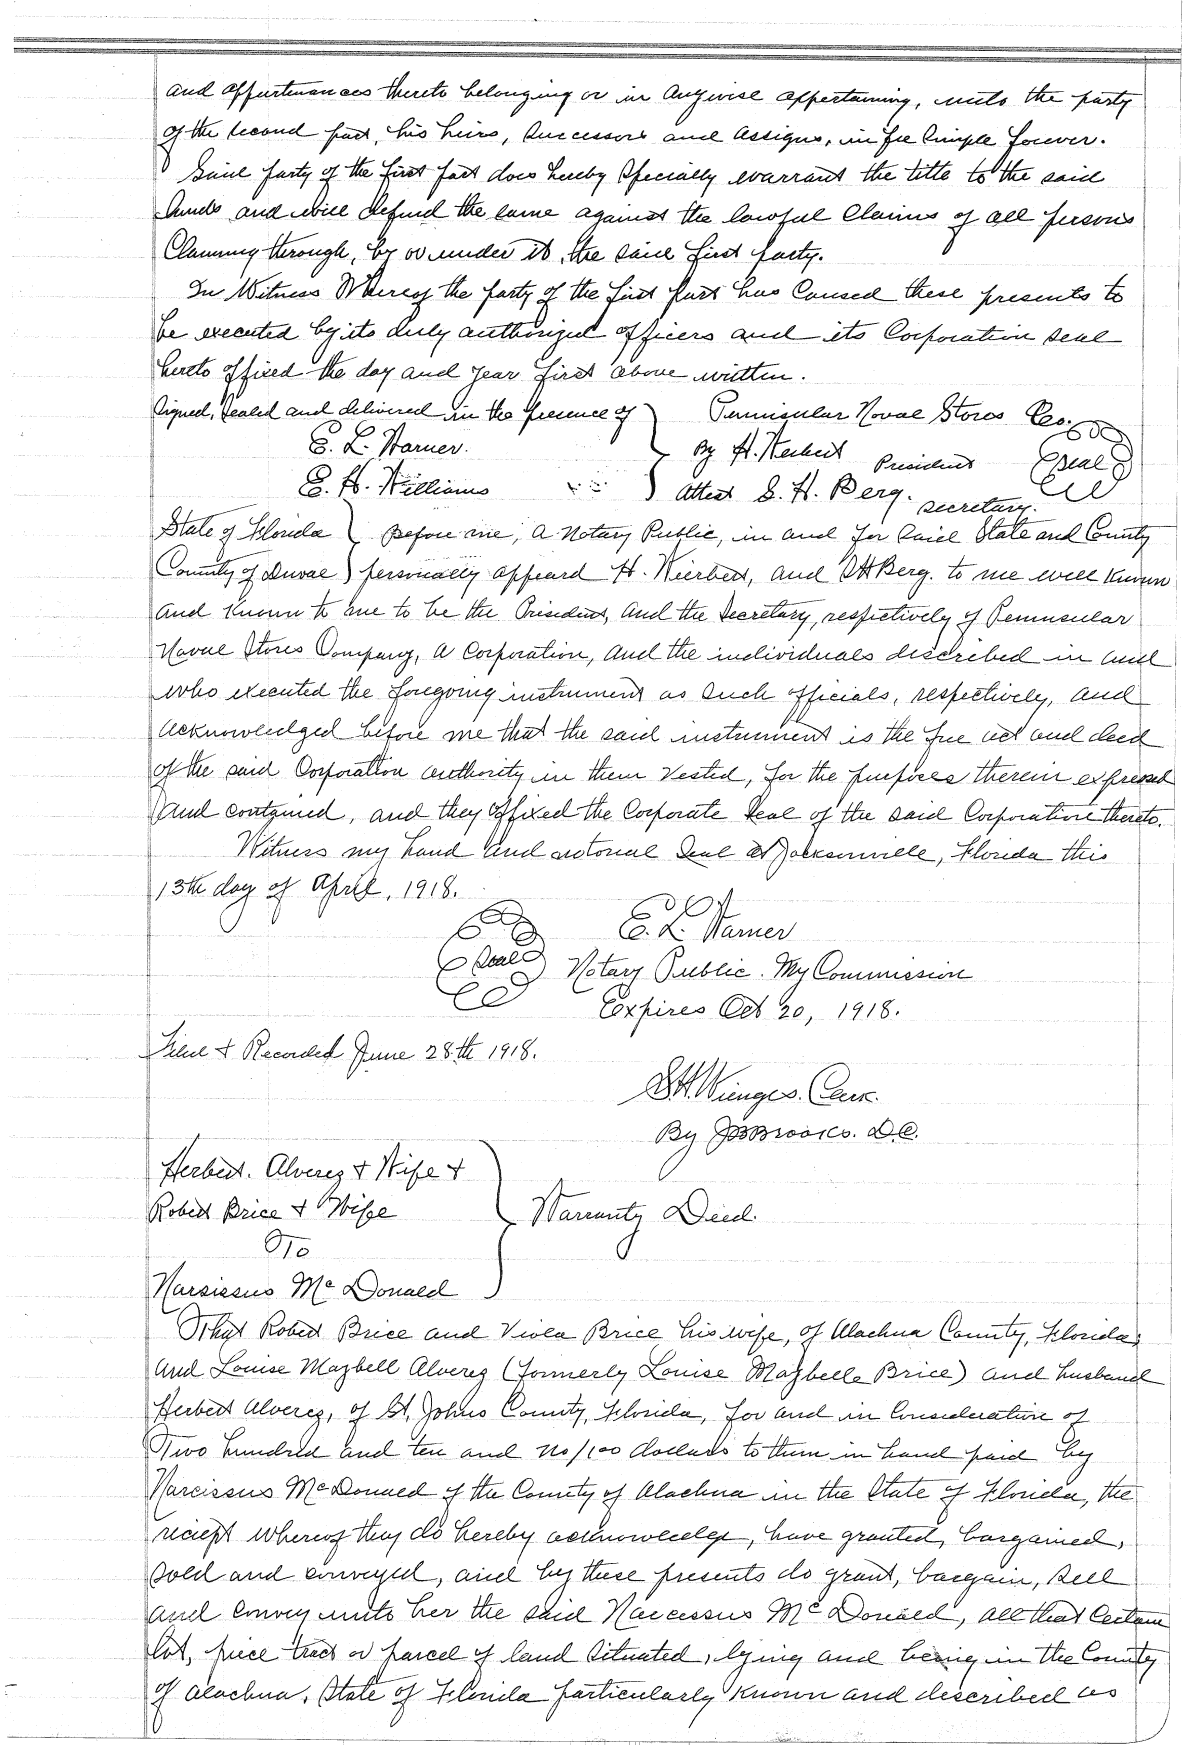 and appurtenances thereto belonging or in anywise appertaining, unto the party
of the second part, his heirs, successors and assigns, in fee simple forever.
Said party of the first part does hereby specially warrant the title to the said
lands and will defend the same against the lawful claims of all persons
claiming through, by or under it, the said first party.
In Witness Whereof the party of the first part has caused these presents to
be executed by its duly authorized officers and its Corporation seal
hereto affixed the day and year first above written.
Signed, sealed and delivered in the presence of ) Peninsular Naval Stores Co.
E. L. Warner. By H. President (Seal)
E. H. Williams ) Attest S. H. Berg. secretary.
State of Florida ) Before me, a Notary Public, in and for said State and County
County of Duval ) personally appeard H. and S H Berg. to me well known
and known to me to be the President, and the Secretary, respictively of Peninsular
Naval Stores Company, a Corporation, and the individuals described in and
who executed the foregoing instrument as such officials, respectively, and
acknowledged before me that the said instrument is the free act and deed
of the said Corporation authority in them vested, for the purposes therein expressed
and contained, and they affixed the Corporate seal of the said Corporation thereto.
Witness my hand and notorial seal at Jacksonville, Florida this
13th day of April, 1918.
E. L. Warner
(Seal) Notary Public. My Commission
Expires Oct 20, 1918.
Filed & Recorded June 28th 1918.
S.H. Wienges. Clerk.
By JB Brooks. D.C.
Herbert. Alverez & Wife &
Robert Brice & Wife ) Warranty Deed.
To
Narsissus Mc Donald
That Robert Brice and Viola Brice his wife, of Alachua County, Florida,
and Louise Maybell Alverez (formerly Louise Maybelle Brice) and husband
Herbert Alverez, of St. Johns County, Florida, for and in consideration of
Two hundred and ten and no/100 dollars to them in hand paid by
Narcissus McDonald of the County of Alachua in the State of Florida, the
reciept whereof they do hereby acknowledge, have granted, bargained,
sold and conveyed, and by these presents do grant, bargain, sell
and convey unto her the said Narcessus Mc Donald, all that certain
lot, piece tract or parcel of land situated, lying and being in the County
of Alachua, State of Florida particularly known and described as